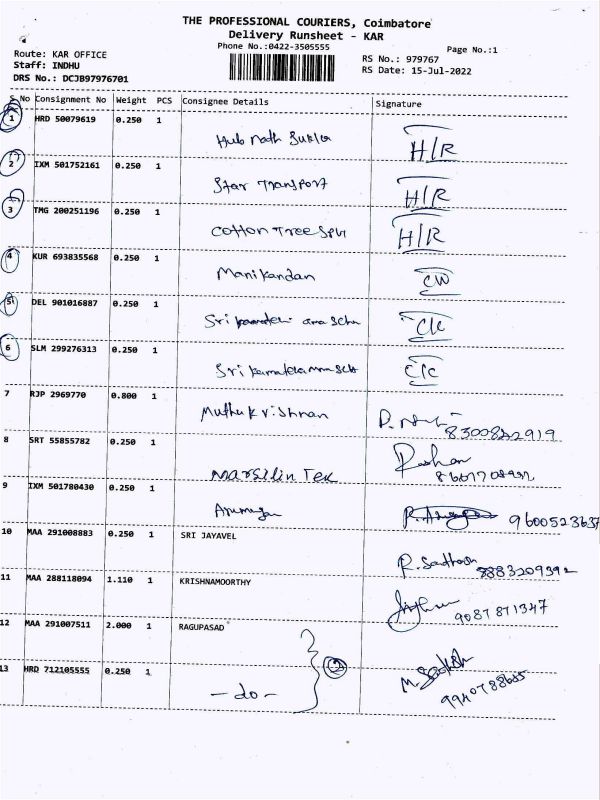 THE PROFESSIONAL COURIERS, Coimbatore
Delivery Runsheet - KAR
Phone No.:0422-3505555
Page No.:1
Route: KAR OFFICE
Staff: INDHU
DRS No.: DCJB97976701
RS No.: 979767
RS Date: 15-Jul-2022
S No Consignment No Weight PCS Consignee Details Signature
1 HRD 50079619 0.250 1
Hub Nath Sukla H/R
2 IXM 501752161 0.250 1
Star Transport H/R
3 TMG 200251196 0.250 1
Cotton Tree H/R
4 KUR 693835568 0.250 1
Manikandan CW
5 DEL 901016887 0.250 1
Sri
6 SLM 299276313 0.250 1
Sri
7 RJP 2969770 0.800 1
Muthukrishnan
8 SRT 55855782 0.250 1
Marsilin Tek
9 IXM 501780430 0.250 1
Arumugam 9600523637
10 MAA 291008883 0.250 1 SRI JAYAVEL
8883209392
11 MAA 288118094 1.110 1 KRISHNAMOORTHY
9087871347
12 MAA 291007511 2.000 1 RAGUPASAD
2
13 HRD 712105555 0.250 1
-do-